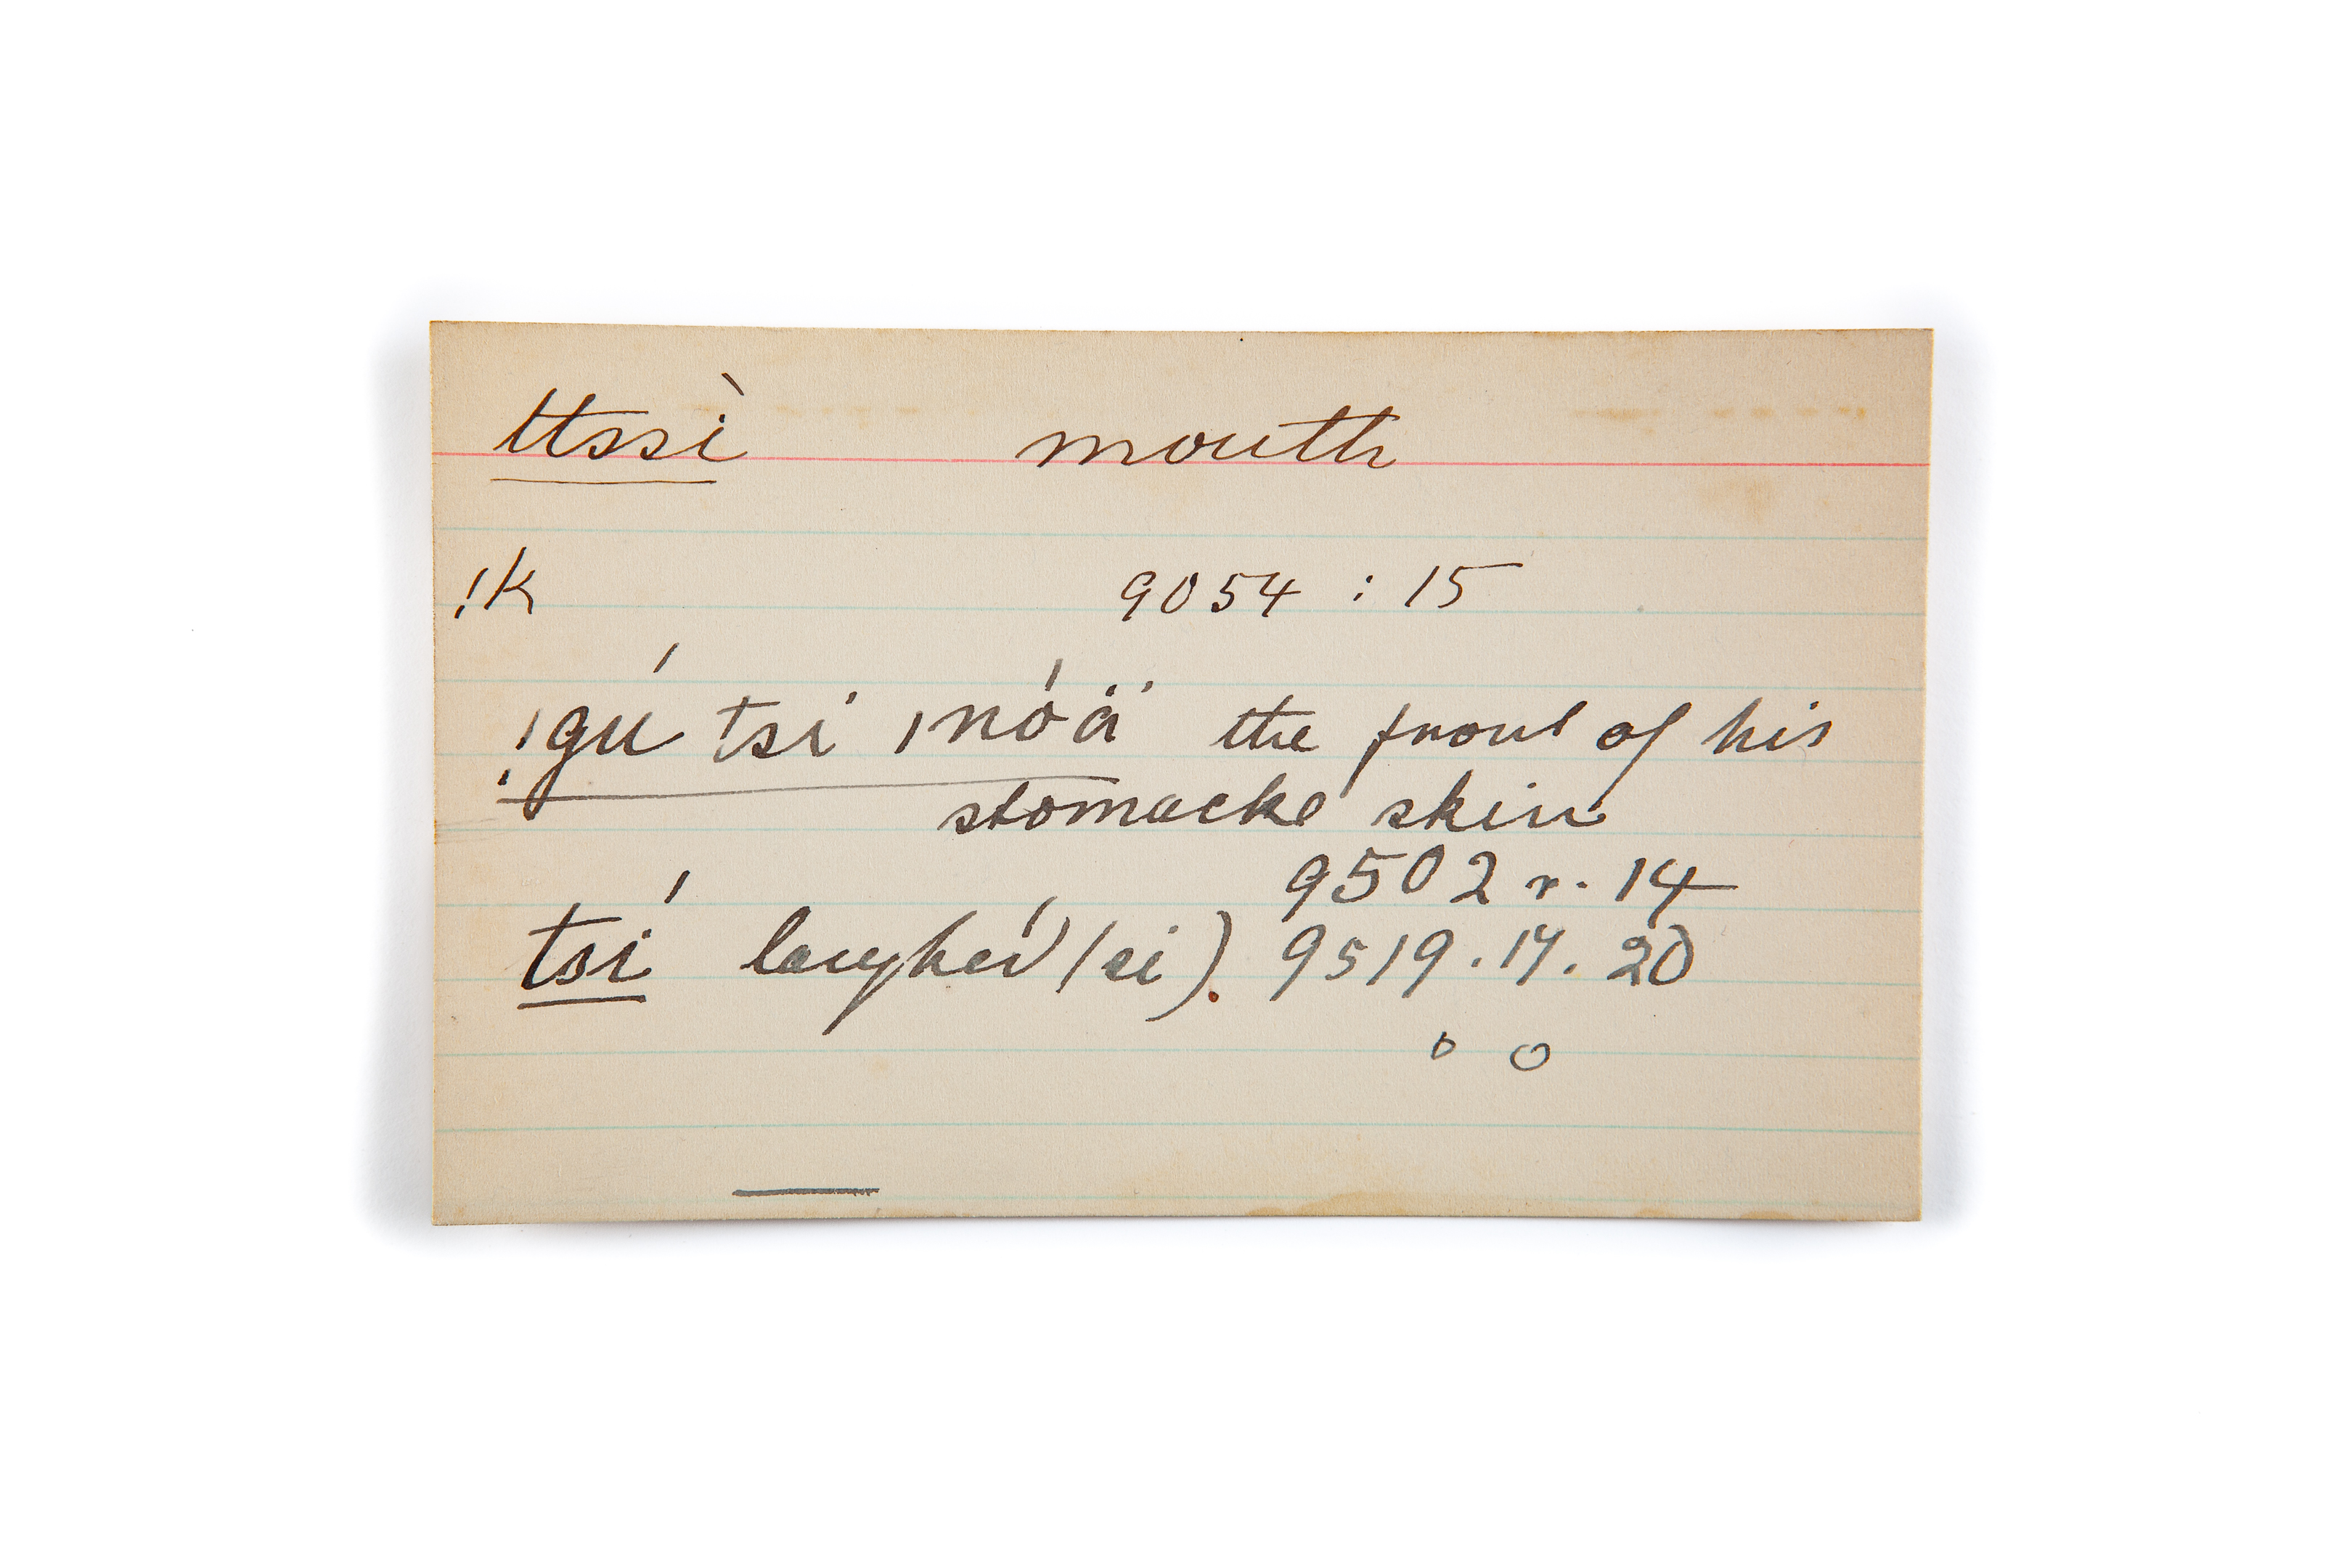 ttssì mouth
!k 9054 : 15
!gú tsi ǀnóä the front of his
stomacke skin
9502 r. 14
tsí laughed (si). 9519.17.20